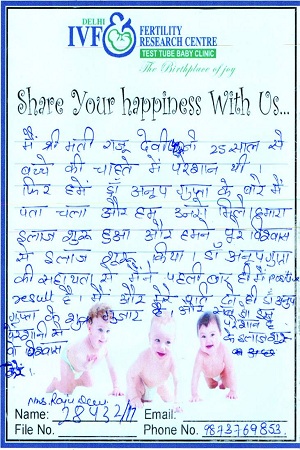 DELHI
IVF FERTILITY
RESEARCH CENTRE
TEST TUBE BABY CLINIC
The Birthplace of joy
Share Your happiness With Us...
मैं श्री मती राजू देवी 25 साल से
बच्चे की चाहते में परेशान थी
फिर हमें डॉ अनूप गुप्ता के बारे में
पता चला और हम उनसे मिले। हमारा
इलाज शुरू हुआ और हमने पूरे विश्वास
से इलाज शुरू किया। डॉ अनूप गुप्ता
की सहायता से मैंने पहली बार ही में Positive
result है। मैं और मेरे पति दोनों ही अनूप
गुप्ता के शुक्र गुजार है। और
परेशानी में
वो विश्वास
करे।
परेशान है
के इलाज शुरू
Mrs. Raju Devi
Name: 28432/17 Email:
File No. Phone No. 9873769853